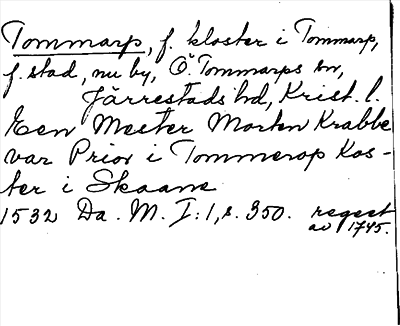 Tommarp, f. kloster i Tommarp,
f. stad, nu by, Ö. Tommarps sn,
Järrestads hd, Krist. l.
Een Mester Morten Krabbe
var Prior i Tommerop Kos-
ter i Skaane
1532 Da. M. I: 1, s. 350. regest
av 1745.